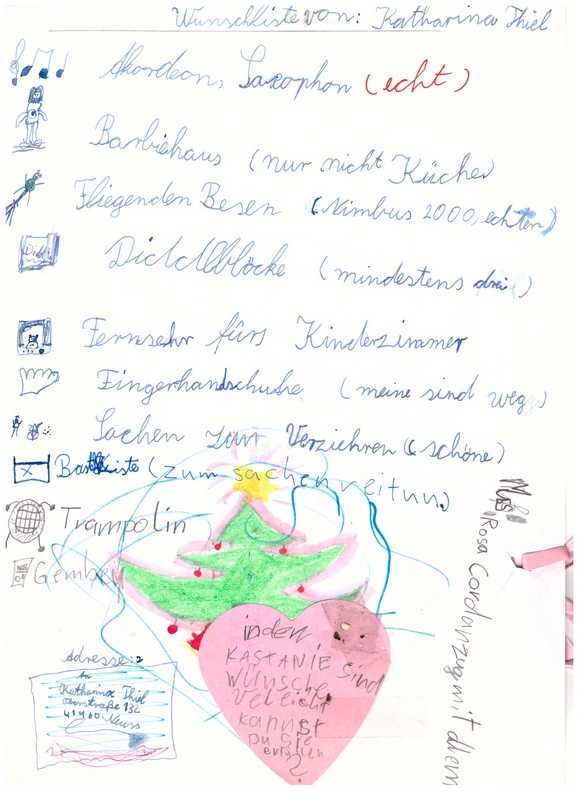 Wunschliste von: Katharina Thiel
Akordeon, Saxophon (echt)
Barbiehaus (nur nicht Küche)
Fliegenden Besen (Nimbus 2000, echten)
Diddlblöcke (mindestens drei)
Fernsehr fürs Kinderzimmer
Fingerhandschuhe (meine sind weg)
Sachen zum Verziehren (& schöne)
(zum sachen
Trampolin
Gembey
Rosa Cordanzug mit dem
Adresse:
Katharina Thiel
132
41460 Neuss
in den
KASTANIE sind
Wünsche
veleicht
kannst
DU sie
erfüllen
?